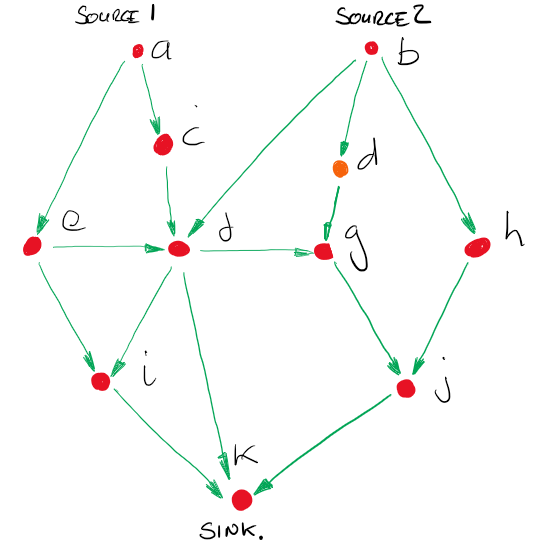 SOURCE 1
SOURCE 2
a
b
c
d
e
g
h
i
j
k
SINK.